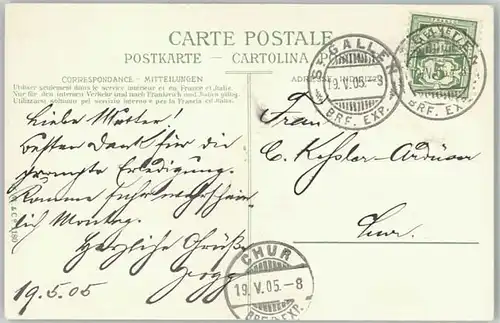 CARTE POSTALE
POSTKARTE - CARTOLINA
CORRESPONDANCE - MITTEILUNGEN
Utiliser seulement dans le service intérieur et en France et Italie.
Nur für den internen Verkehr und nach Frankreich und Italien gültig.
Utilizzare soltanto pel servizio interno e per la Francia ed Italia.
ST GALLEN
19.V.05.–8
BRF. EXP.
5
Liebe Mutter!
besten Dank für die
prompte Erledigung.
Komme sehr wahrschein-
lich Montag.
Herzliche Grüße
19.5.05
Frau
C. Kessler-Arduser
Chur.
CHUR
19.V.05.–8
BRF. EXP.